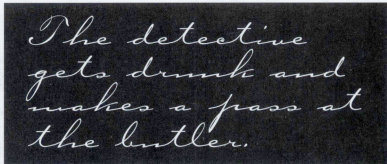 The detective
gets drunk and
makes a pass at
the butler.